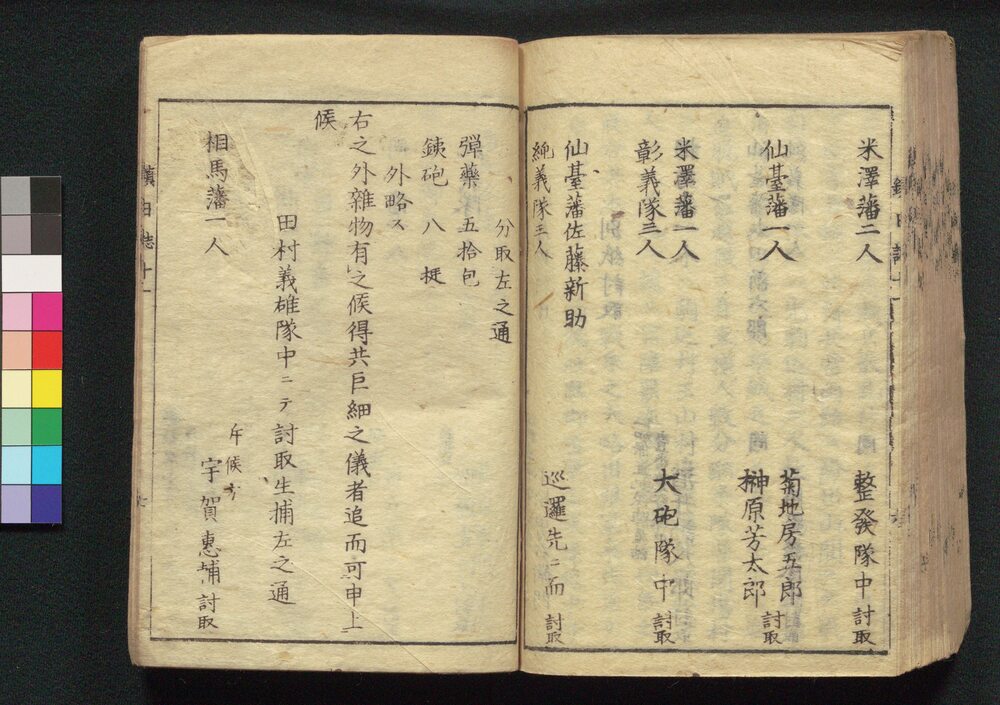 米澤藩二人 整發隊中 討取
仙臺藩一人 菊地房五郎
榊原芳太郎 討取
米澤藩一人
彰義隊三人 大砲隊中 討取
仙臺藩佐藤新助
純義隊三人 巡邏先ニ而 討取
分取左之通
彈藥 五拾包
銕砲 八挺
外略ス
右之外雜物有之候得共巨細之儀者追而可申上
候
田村義雄隊中ニテ討取生捕左之通
斥候方
相馬藩一人 宇賀惠埔 討取
鎮日誌十一